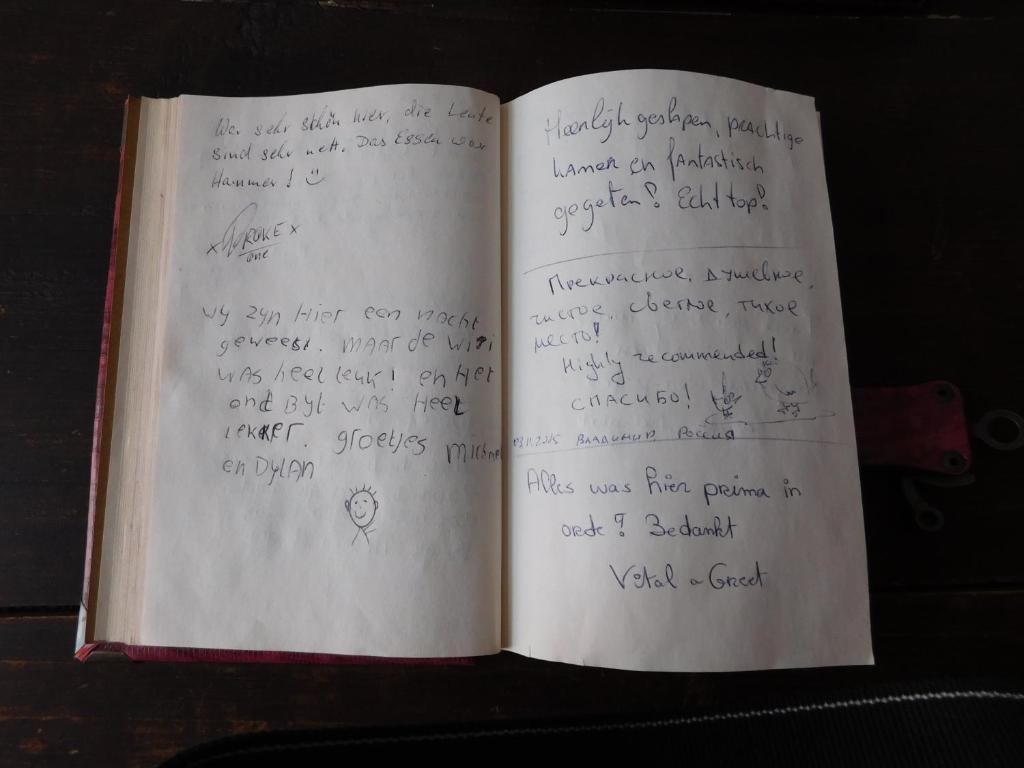 War sehr schön hier, die Leute
sind sehr nett. Das Essen war
Hammer!
x BROKE x
one
Wy zyn Hier een nacht
geweest. MAAR de wifi
WAS heel leuk! en Het
ontByt WAS HeeL
LeKKer. groetjes
en DylAN
Heerlijk geslapen, prachtige
kamer en fantastisch
gegeten! Echt top!
Прекрасное, душевное,
чистое, светлое, тихое
место!
Highly recommended!
СПАСИБО!
.11.2015 Владимир Россия
Alles was hier prima in
orde! Bedankt
Vital & Greet